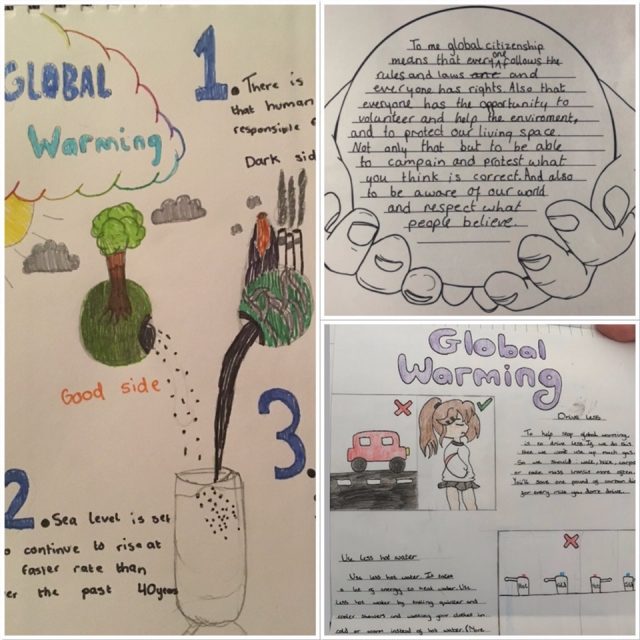 GLOBAL
Warming
1. There is
that human
responsible
Dark sid
Good side
3.
2. Sea level is set
o continue to rise at
faster rate than
er the past 40years
To me global citizenship
means that every one follows the
rules and laws are and
everyone has rights. Also that
everyone has the opportunity to
volunteer and help the enviroment,
and to protect our living space.
Not only that but to be able
to campain and protest what
you think is correct. And also
to be aware of our world
and respect what
people believe.
Global
Warming
Drive Less
To help stop global warming,
is to drive less. If we do this
then we wont use up much gas.
So we should walk, bike, carpool
or take mass transit more often.
You'll save one pound of carbon
for every mile you don't drive.
Use less hot water
Use less hot water. It takes
a lot of energy to heat water. Use
less hot water by taking quicker and
cooler showers and washing your clothes in
cold or warm instead of hot water. (More